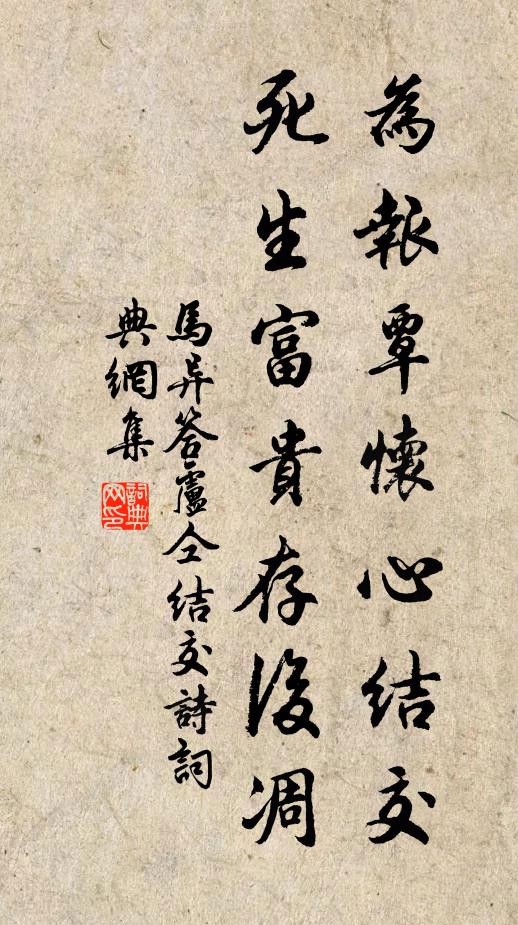 為報覃懷心結交
死生富貴存後凋
馬异答盧仝結交詩詞
典網集
詞典
网印